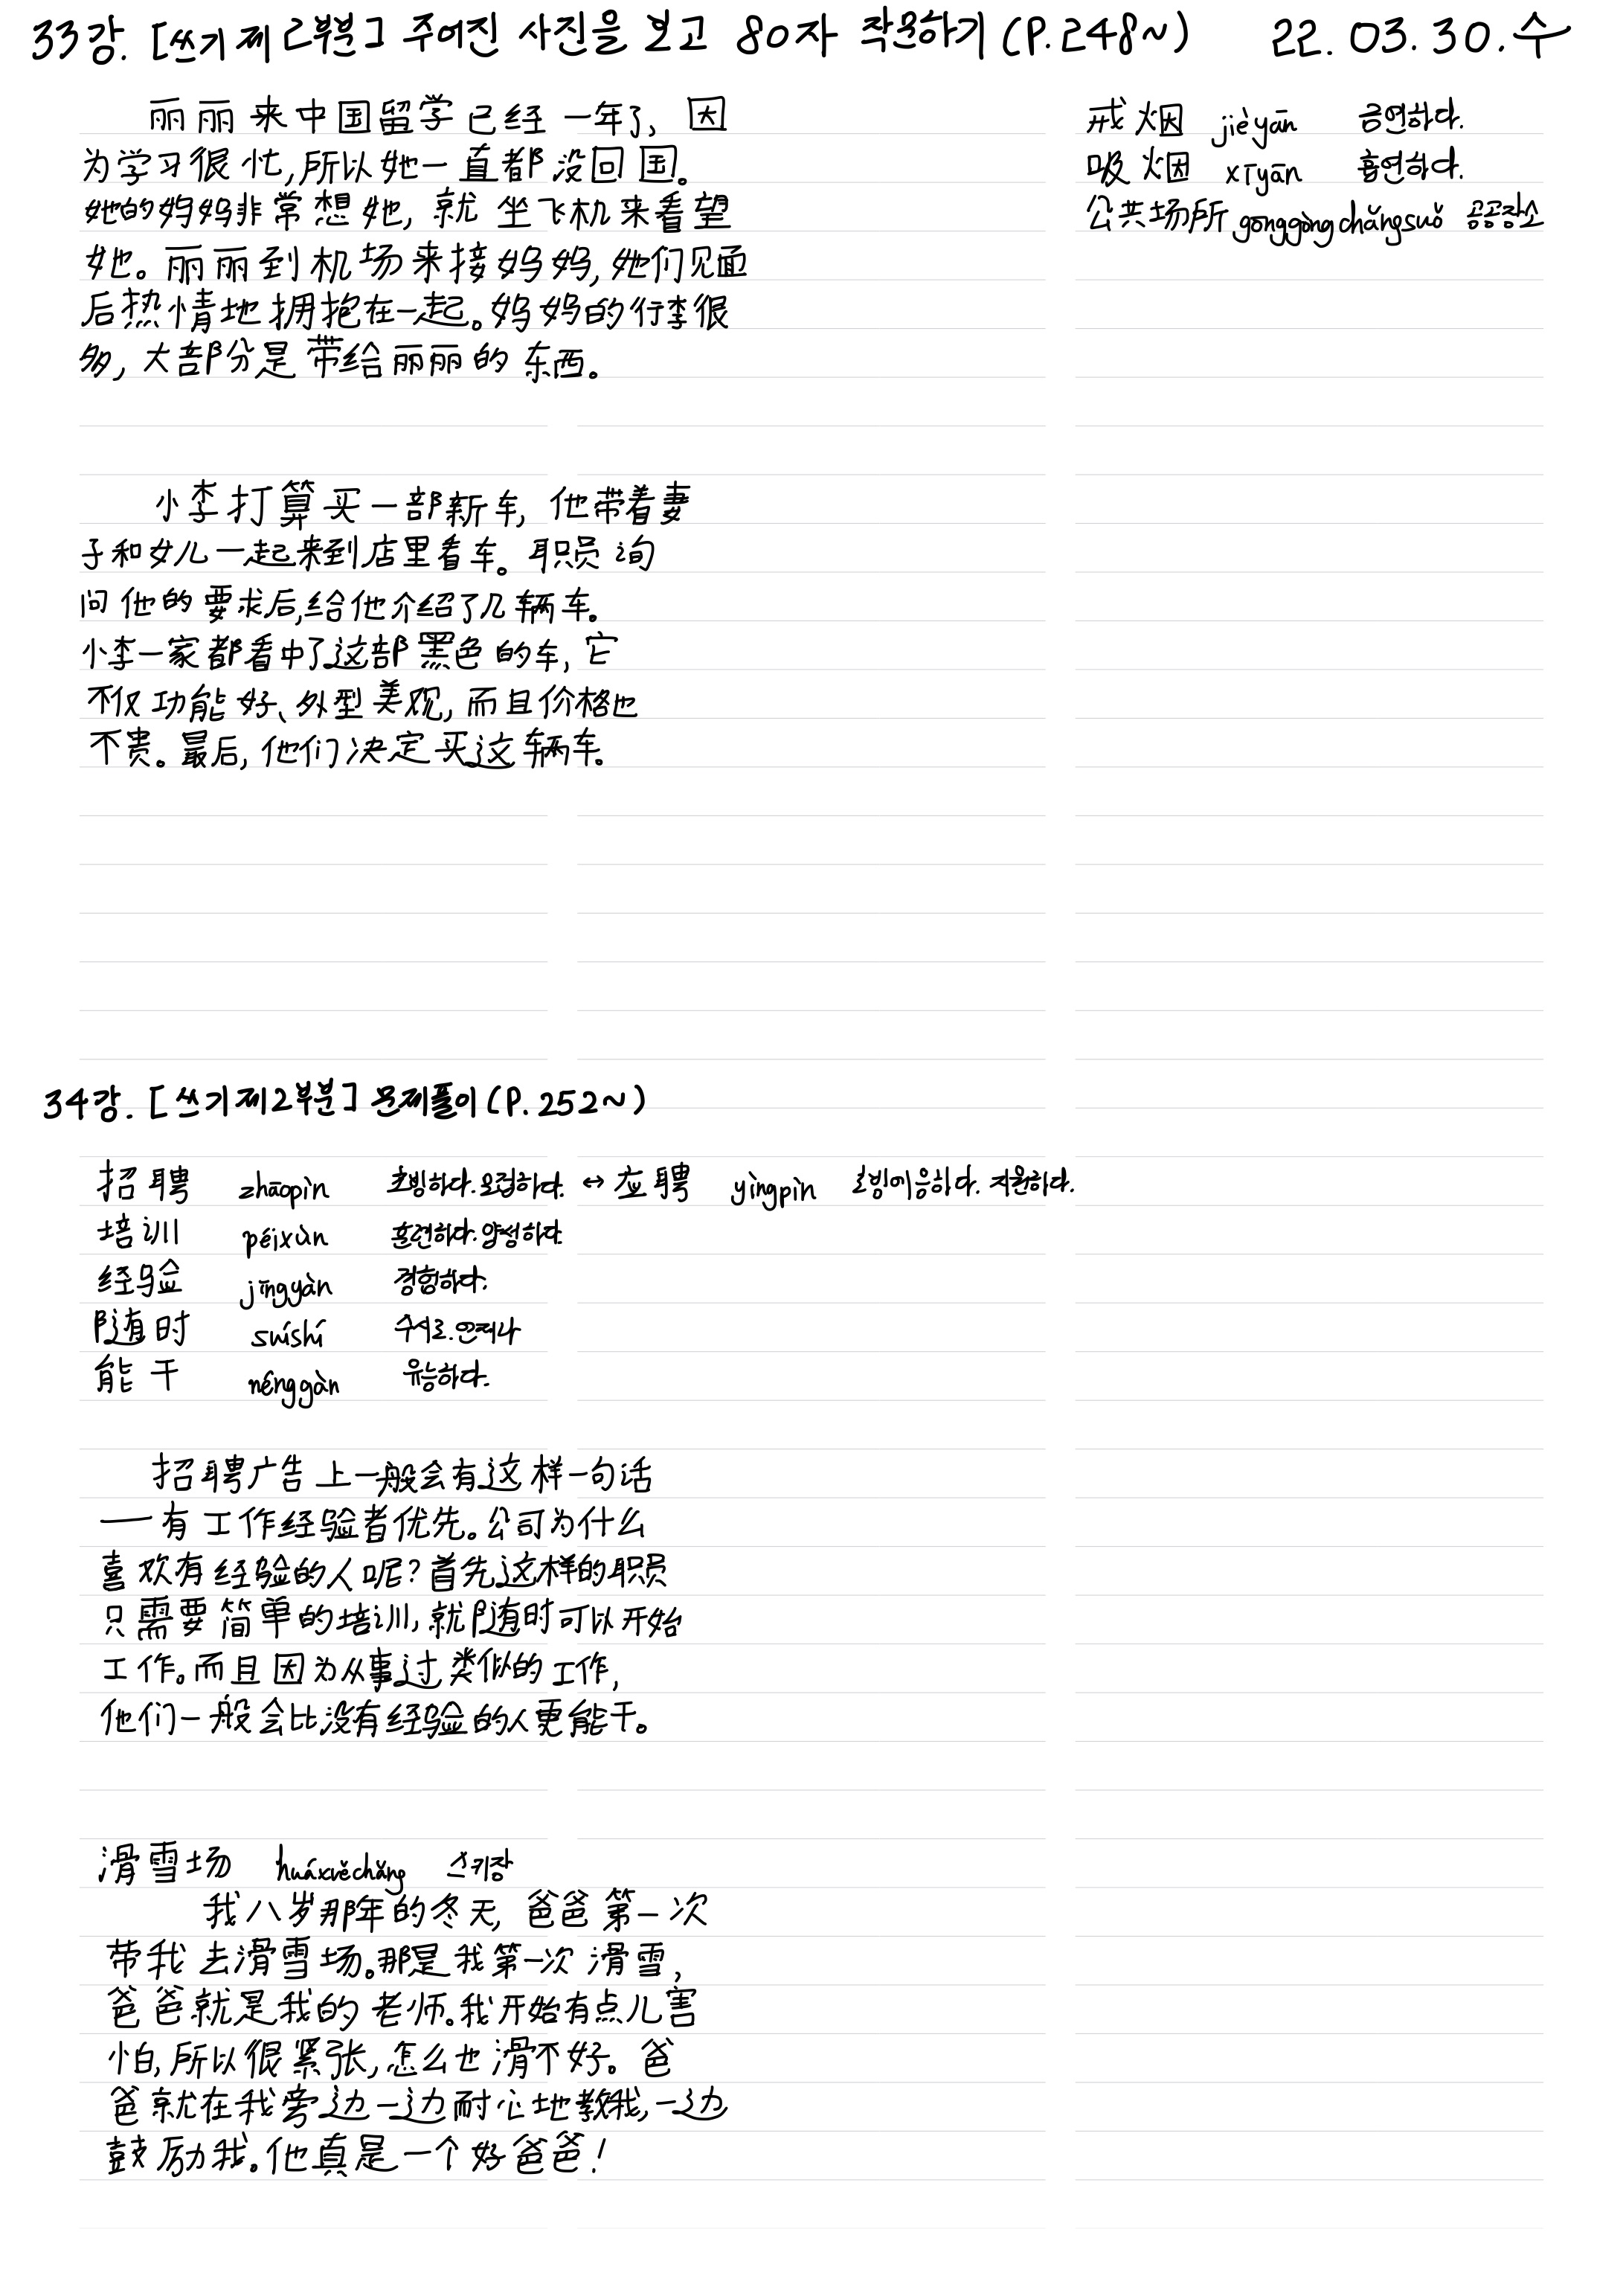 33강. [쓰기 제2부분] 주어진 사진을 보고 80자 작문하기 (P.248~) 22. 03. 30. 수
丽丽来中国留学已经一年了, 因
为学习很忙, 所以她一直都没回国。
她的妈妈非常想她, 就坐飞机来看望
她。丽丽到机场来接妈妈, 她们见面
后热情地拥抱在一起。妈妈的行李很
多, 大部分是带给丽丽的东西。
戒烟 jièyān 금연하다.
吸烟 xīyān 흡연하다.
公共场所 gōnggòng chǎngsuǒ 공공장소
小李打算买一部新车, 他带着妻
子和女儿一起来到店里看车。职员询
问他的要求后, 给他介绍了几辆车。
小李一家都看中了这部黑色的车, 它
不仅功能好、外型美观, 而且价格也
不贵。最后, 他们决定买这辆车。
34강. [쓰기 제2부분] 문제풀이 (P. 252~)
招聘 zhāopìn 초빙하다. 모집하다. ↔ 应聘 yìngpìn 초빙에 응하다. 지원하다.
培训 péixùn 훈련하다. 양성하다
经验 jīngyàn 경험하다.
随时 suíshí 수시로. 언제나
能干 nénggàn 유능하다.
招聘广告上一般会有这样一句话
——有工作经验者优先。公司为什么
喜欢有经验的人呢? 首先这样的职员
只需要简单的培训, 就随时可以开始
工作。而且因为从事过类似的工作,
他们一般会比没有经验的人更能干。
滑雪场 huáxuěchǎng 스키장
我八岁那年的冬天, 爸爸第一次
带我去滑雪场。那是我第一次滑雪,
爸爸就是我的老师。我开始有点儿害
怕, 所以很紧张, 怎么也滑不好。爸
爸就在我旁边一边耐心地教我, 一边
鼓励我。他真是一个好爸爸!